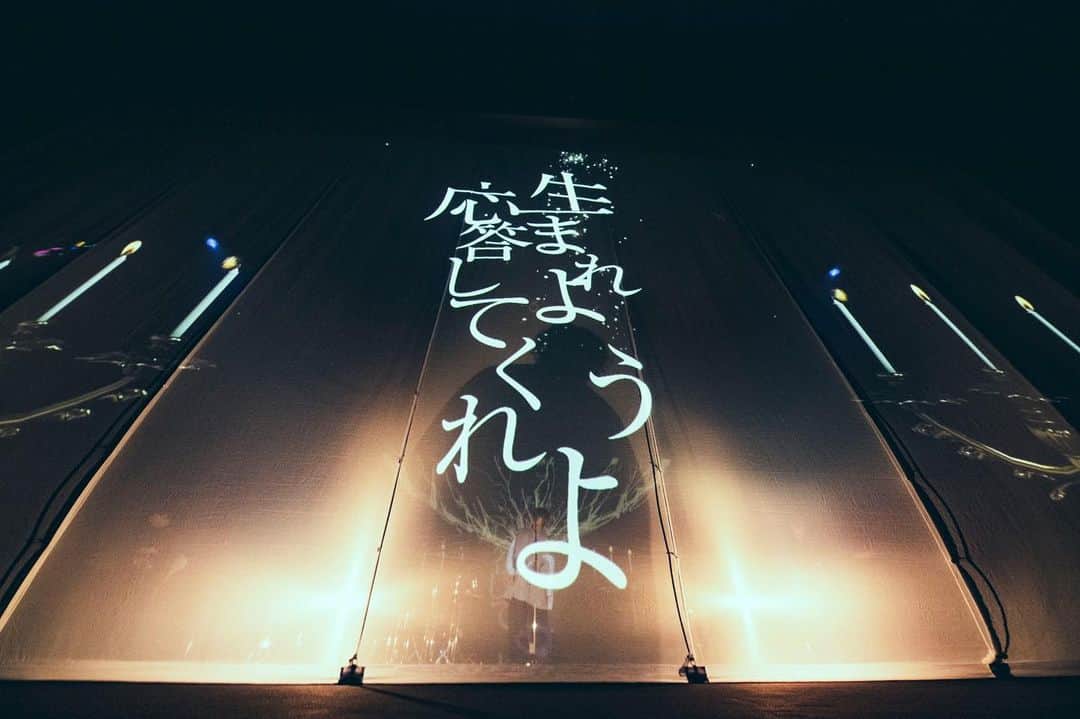 生まれようよ
応答してくれ